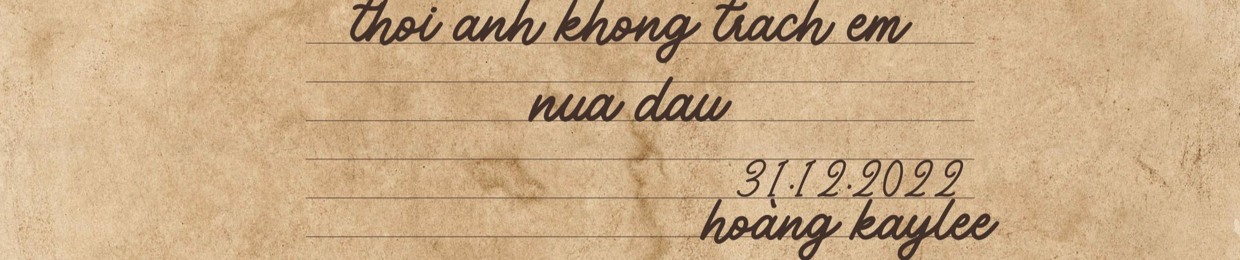 thoi anh khong trach em
nua dau
31.12.2022
hoàng kaylee